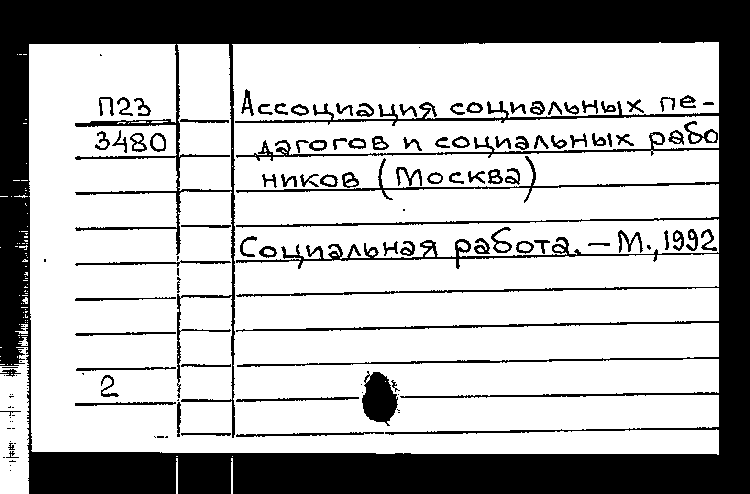 П23
3480
Ассоциация социальных пе-
дагогов и социальных рабо
ников (Москва)
Социальная работа. – М., 1992
2